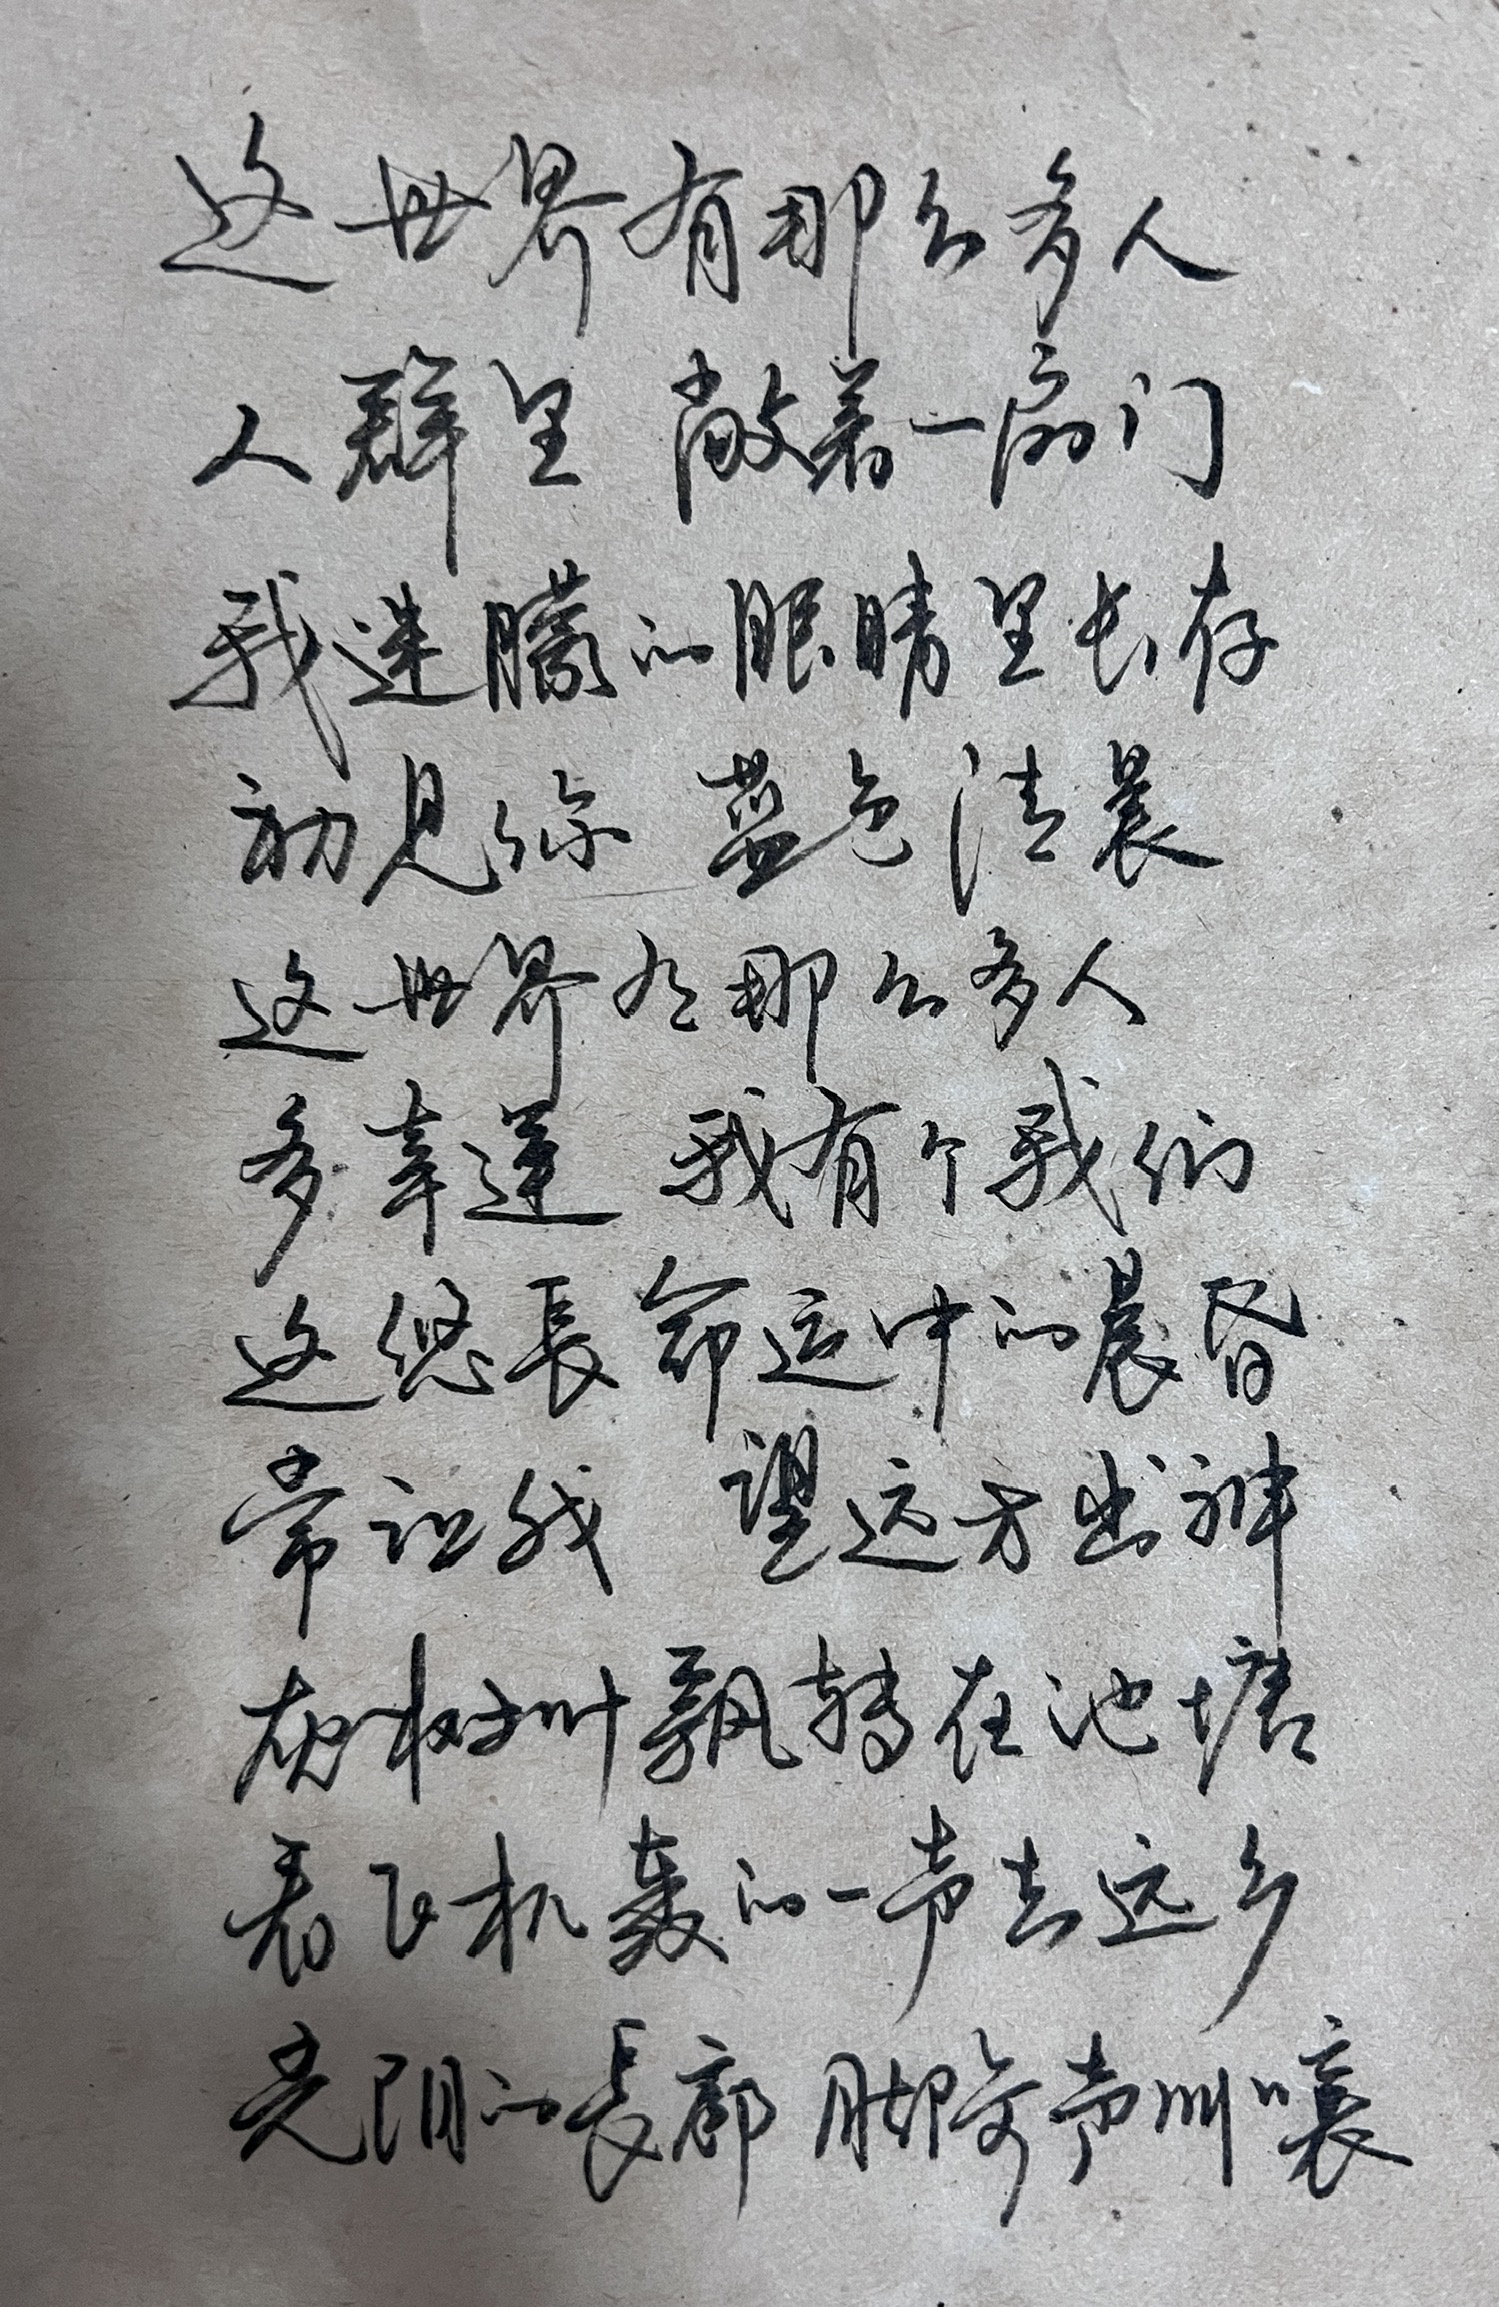 这世界有那么多人
人群里 敞着一扇门
我迷朦的眼睛里长存
初见你 蓝色清晨
这世界有那么多人
多幸運 我有个我们
这悠長命运中的晨昏
常让我 望远方出神
灰树叶飘轉在池塘
看飞机轰的一声去远乡
光阴的長廊 脚步声叫嚷